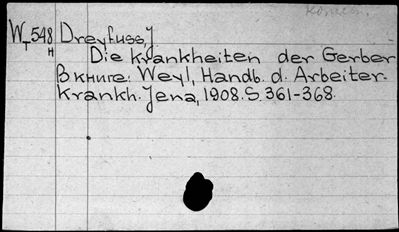 W 548 Dreyfuss J
T H
Die Krankheiten der Gerber
В книге: Weyl, Handb. d. Arbeiter-
Krankh. Jena, 1908. S. 361-368.